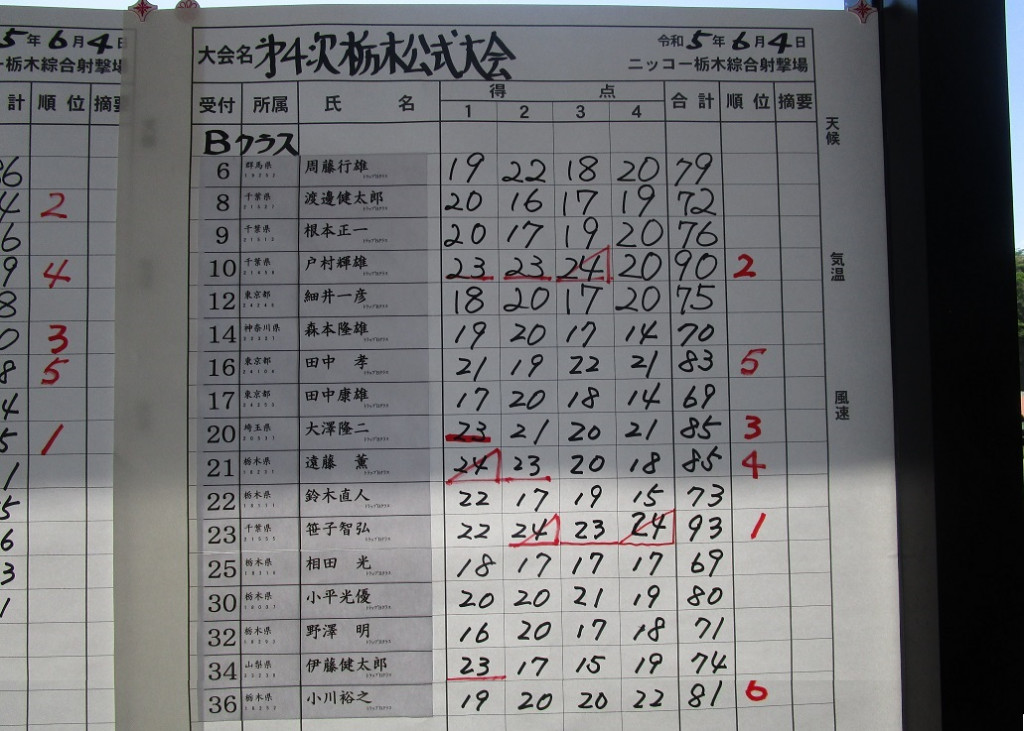 5年6月4日
栃木綜合射撃場
計 順位 摘要
36
4 2
6
9 4
8
0 3
8 5
4
5 1
1
5
6
3
1
大会名 第4次栃木公式大会 令和5年6月4日
ニッコー栃木綜合射撃場
受付 所属 氏名 得点 合計 順位 摘要
1 2 3 4
天候
Bクラス
6 群馬県 周藤行雄 19 22 18 20 79
8 千葉県 渡邊健太郎 20 16 17 19 72
9 千葉県 根本正一 20 17 19 20 76
気温
10 千葉県 戸村輝雄 23 23 24 20 90 2
12 東京都 細井一彦 18 20 17 20 75
14 神奈川県 森本隆雄 19 20 17 14 70
16 東京都 田中 孝 21 19 22 21 83 5
風速
17 東京都 田中康雄 17 20 18 14 69
20 埼玉県 大澤隆二 23 21 20 21 85 3
21 栃木県 遠藤 薫 24 23 20 18 85 4
22 栃木県 鈴木直人 22 17 19 15 73
23 千葉県 笹子智弘 22 24 23 24 93 1
25 栃木県 相田 光 18 17 17 17 69
30 栃木県 小平光優 20 20 21 19 80
32 栃木県 野澤 明 16 20 17 18 71
34 山梨県 伊藤健太郎 23 17 15 19 74
36 栃木県 小川裕之 19 20 20 22 81 6